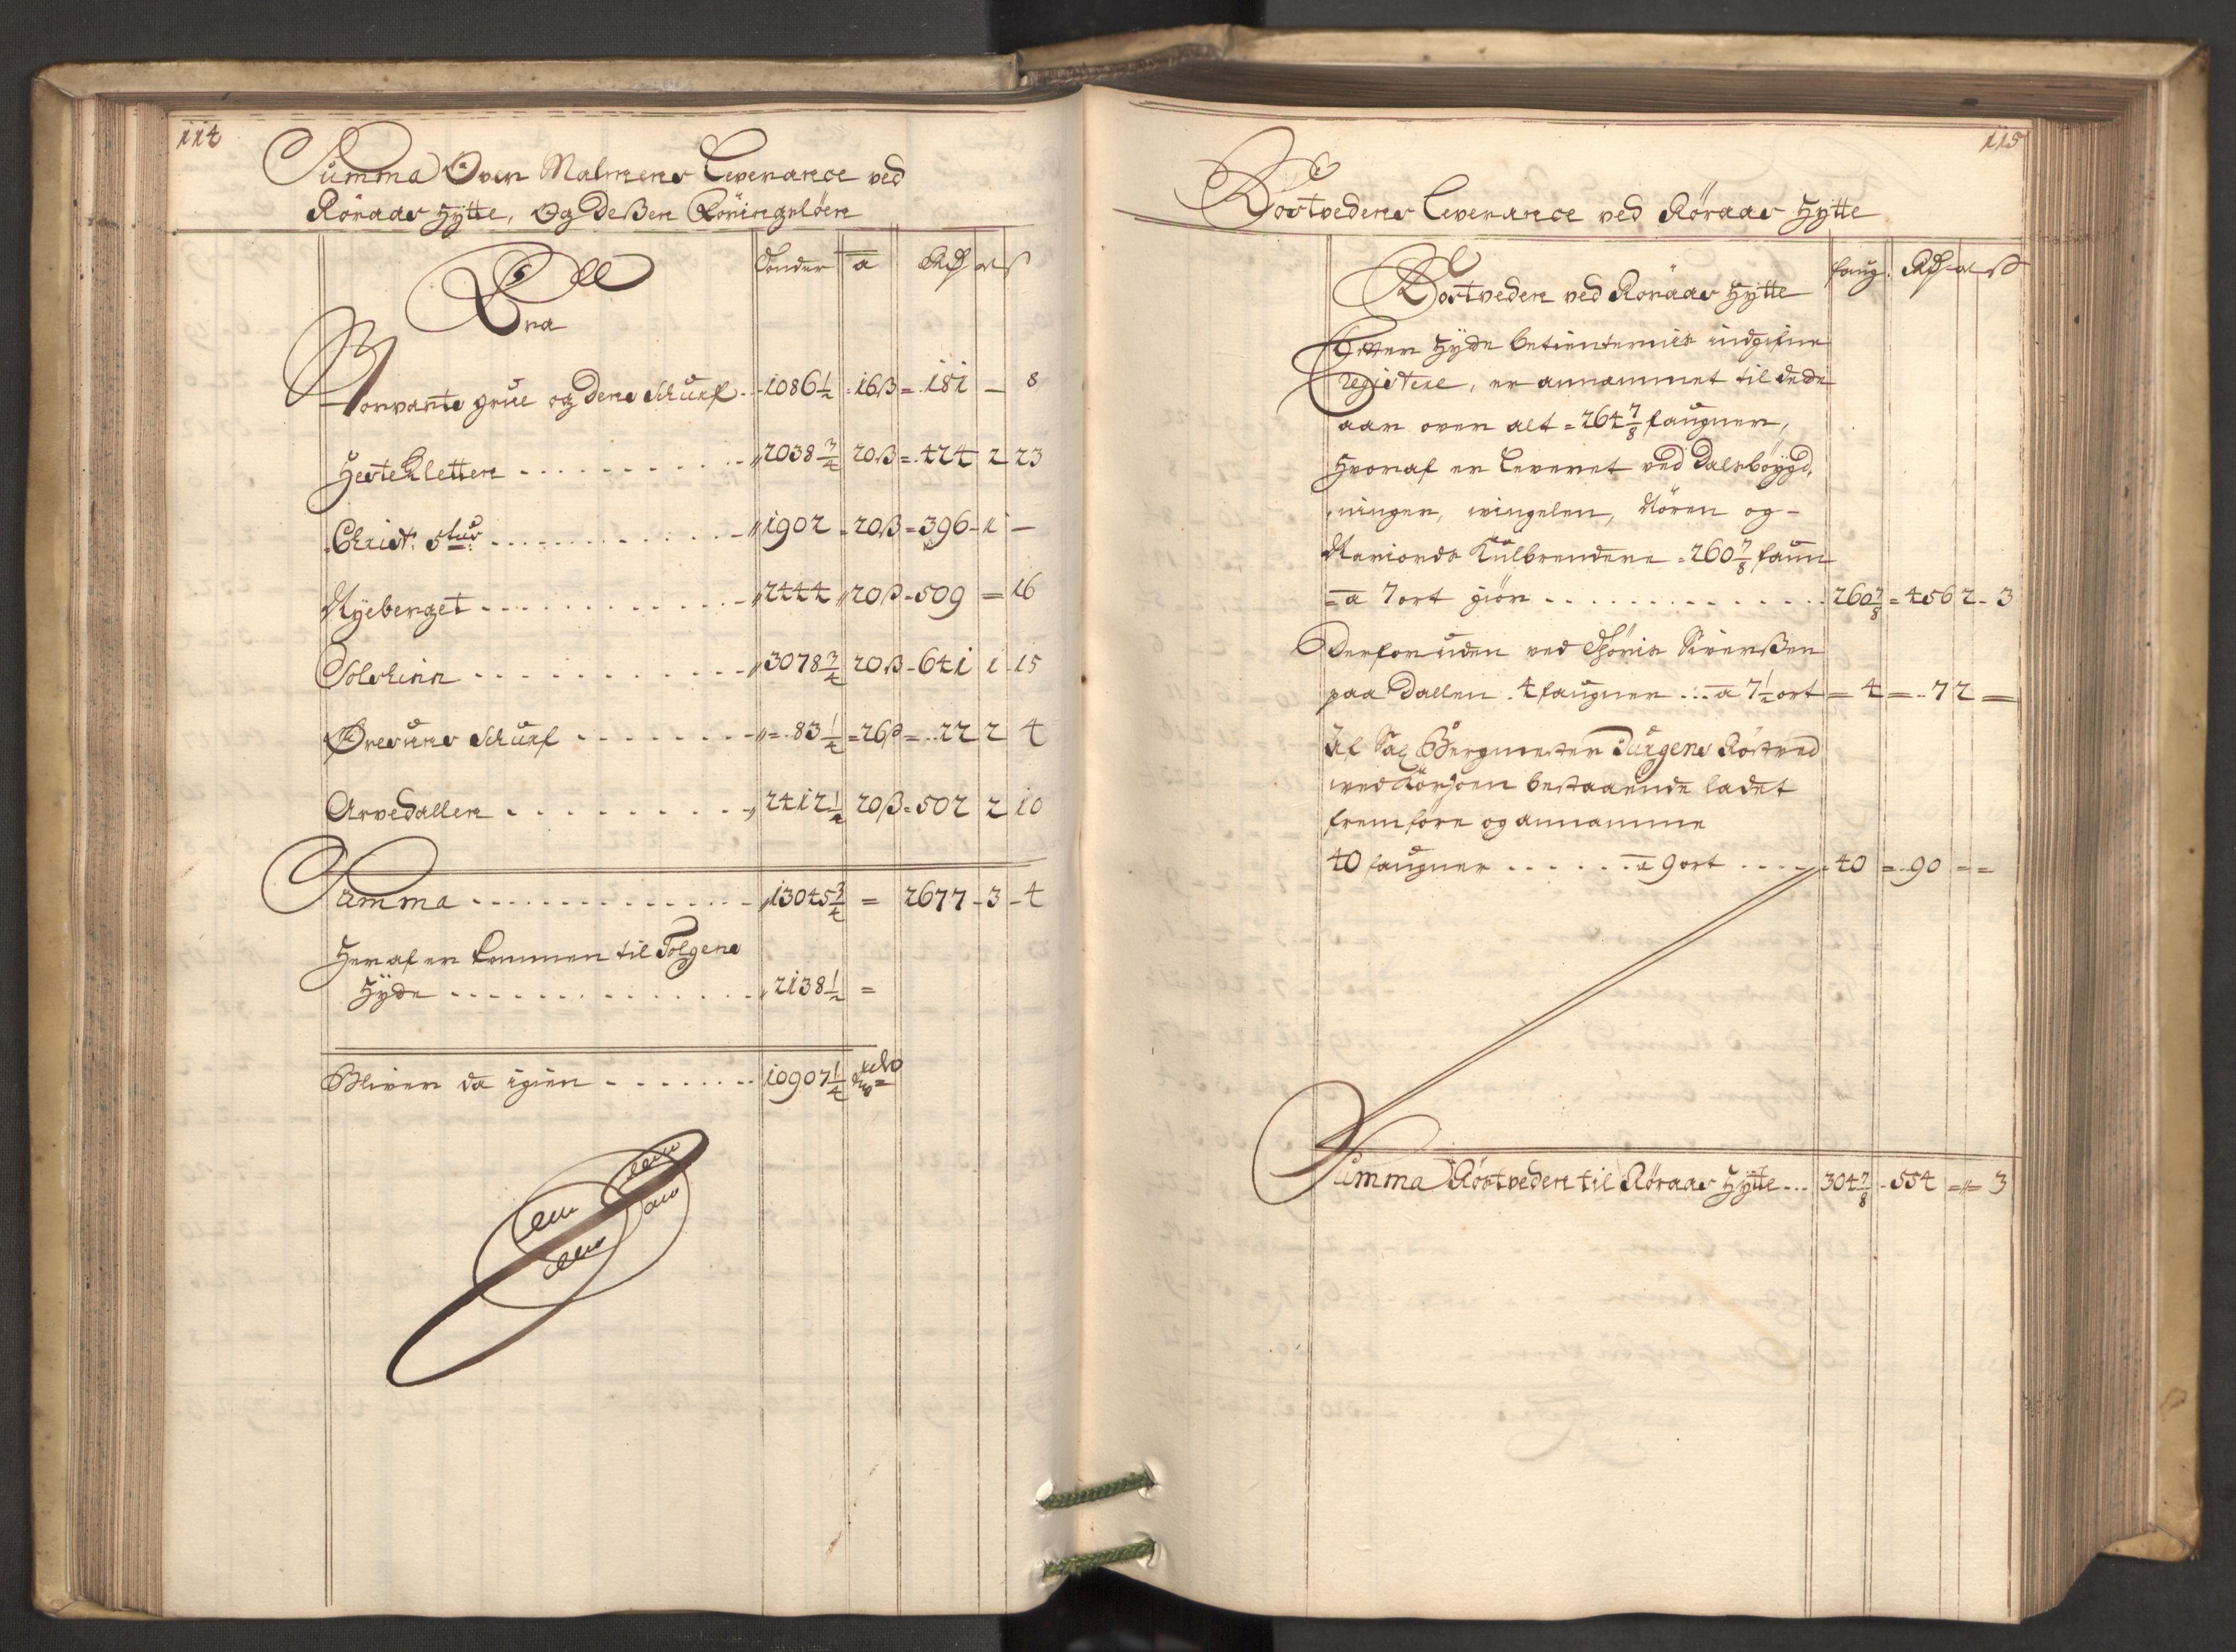 114
Summa Over Malmens Leverance ved
Röraas Hytte, Og Deßen Köringslöen
Tönder a Rdr ort ß
Fra
Storvarts grue og dens Schurf - 1086½ - 16ß = 181 — 8
HesteKletten - 2038¾ 20ß = 424 2 23
Christ: 5tus - 1902 - 20ß = 396 - 1 —
Nÿeberget - 2444 20ß - 509 = 16
Solskinn - 3078¾ 20ß - 641 1 15
Øresuns Schurf - 83¼ = 26ß = 22 2 4
Arvedallen - 2412½ 20ß = 502 2 10
Summa - 13045¾ = 2677 - 3 - 4
Heraf er kommen til Tolgens
Hÿde - 2138½ =
Bliver da igien - 10907¼
115
Röstvedens Leverance ved Röraas Hytte
faug. Rdr ort ß
Röstveden ved Röraas Hÿtte
Efter Hÿde betienternis indgifne
Registere, er annammet til dede
aar over alt = 264⅞ faugner,
Hvoraf er Leveret ved Dalsböÿgd,
ninger, vingelen, Nören og -
Narjords Kulbrendere = 260⅞ faun
= a 7 ort giör - 260⅞ = 456 2 - 3
Derforuden ved Siverßen
paa Dallen . 4 faugner ... a 7½ ort = 4 = 7 2 =
Af Sal Bergmester Jürgens Röstved
ved bestaaende ladet
fremföre og annamme
40 faugner - a 9 ort - 40 = 90 = =
Summa Röstveden til Röraas Hÿtte - 304⅞ - 554 = = 3